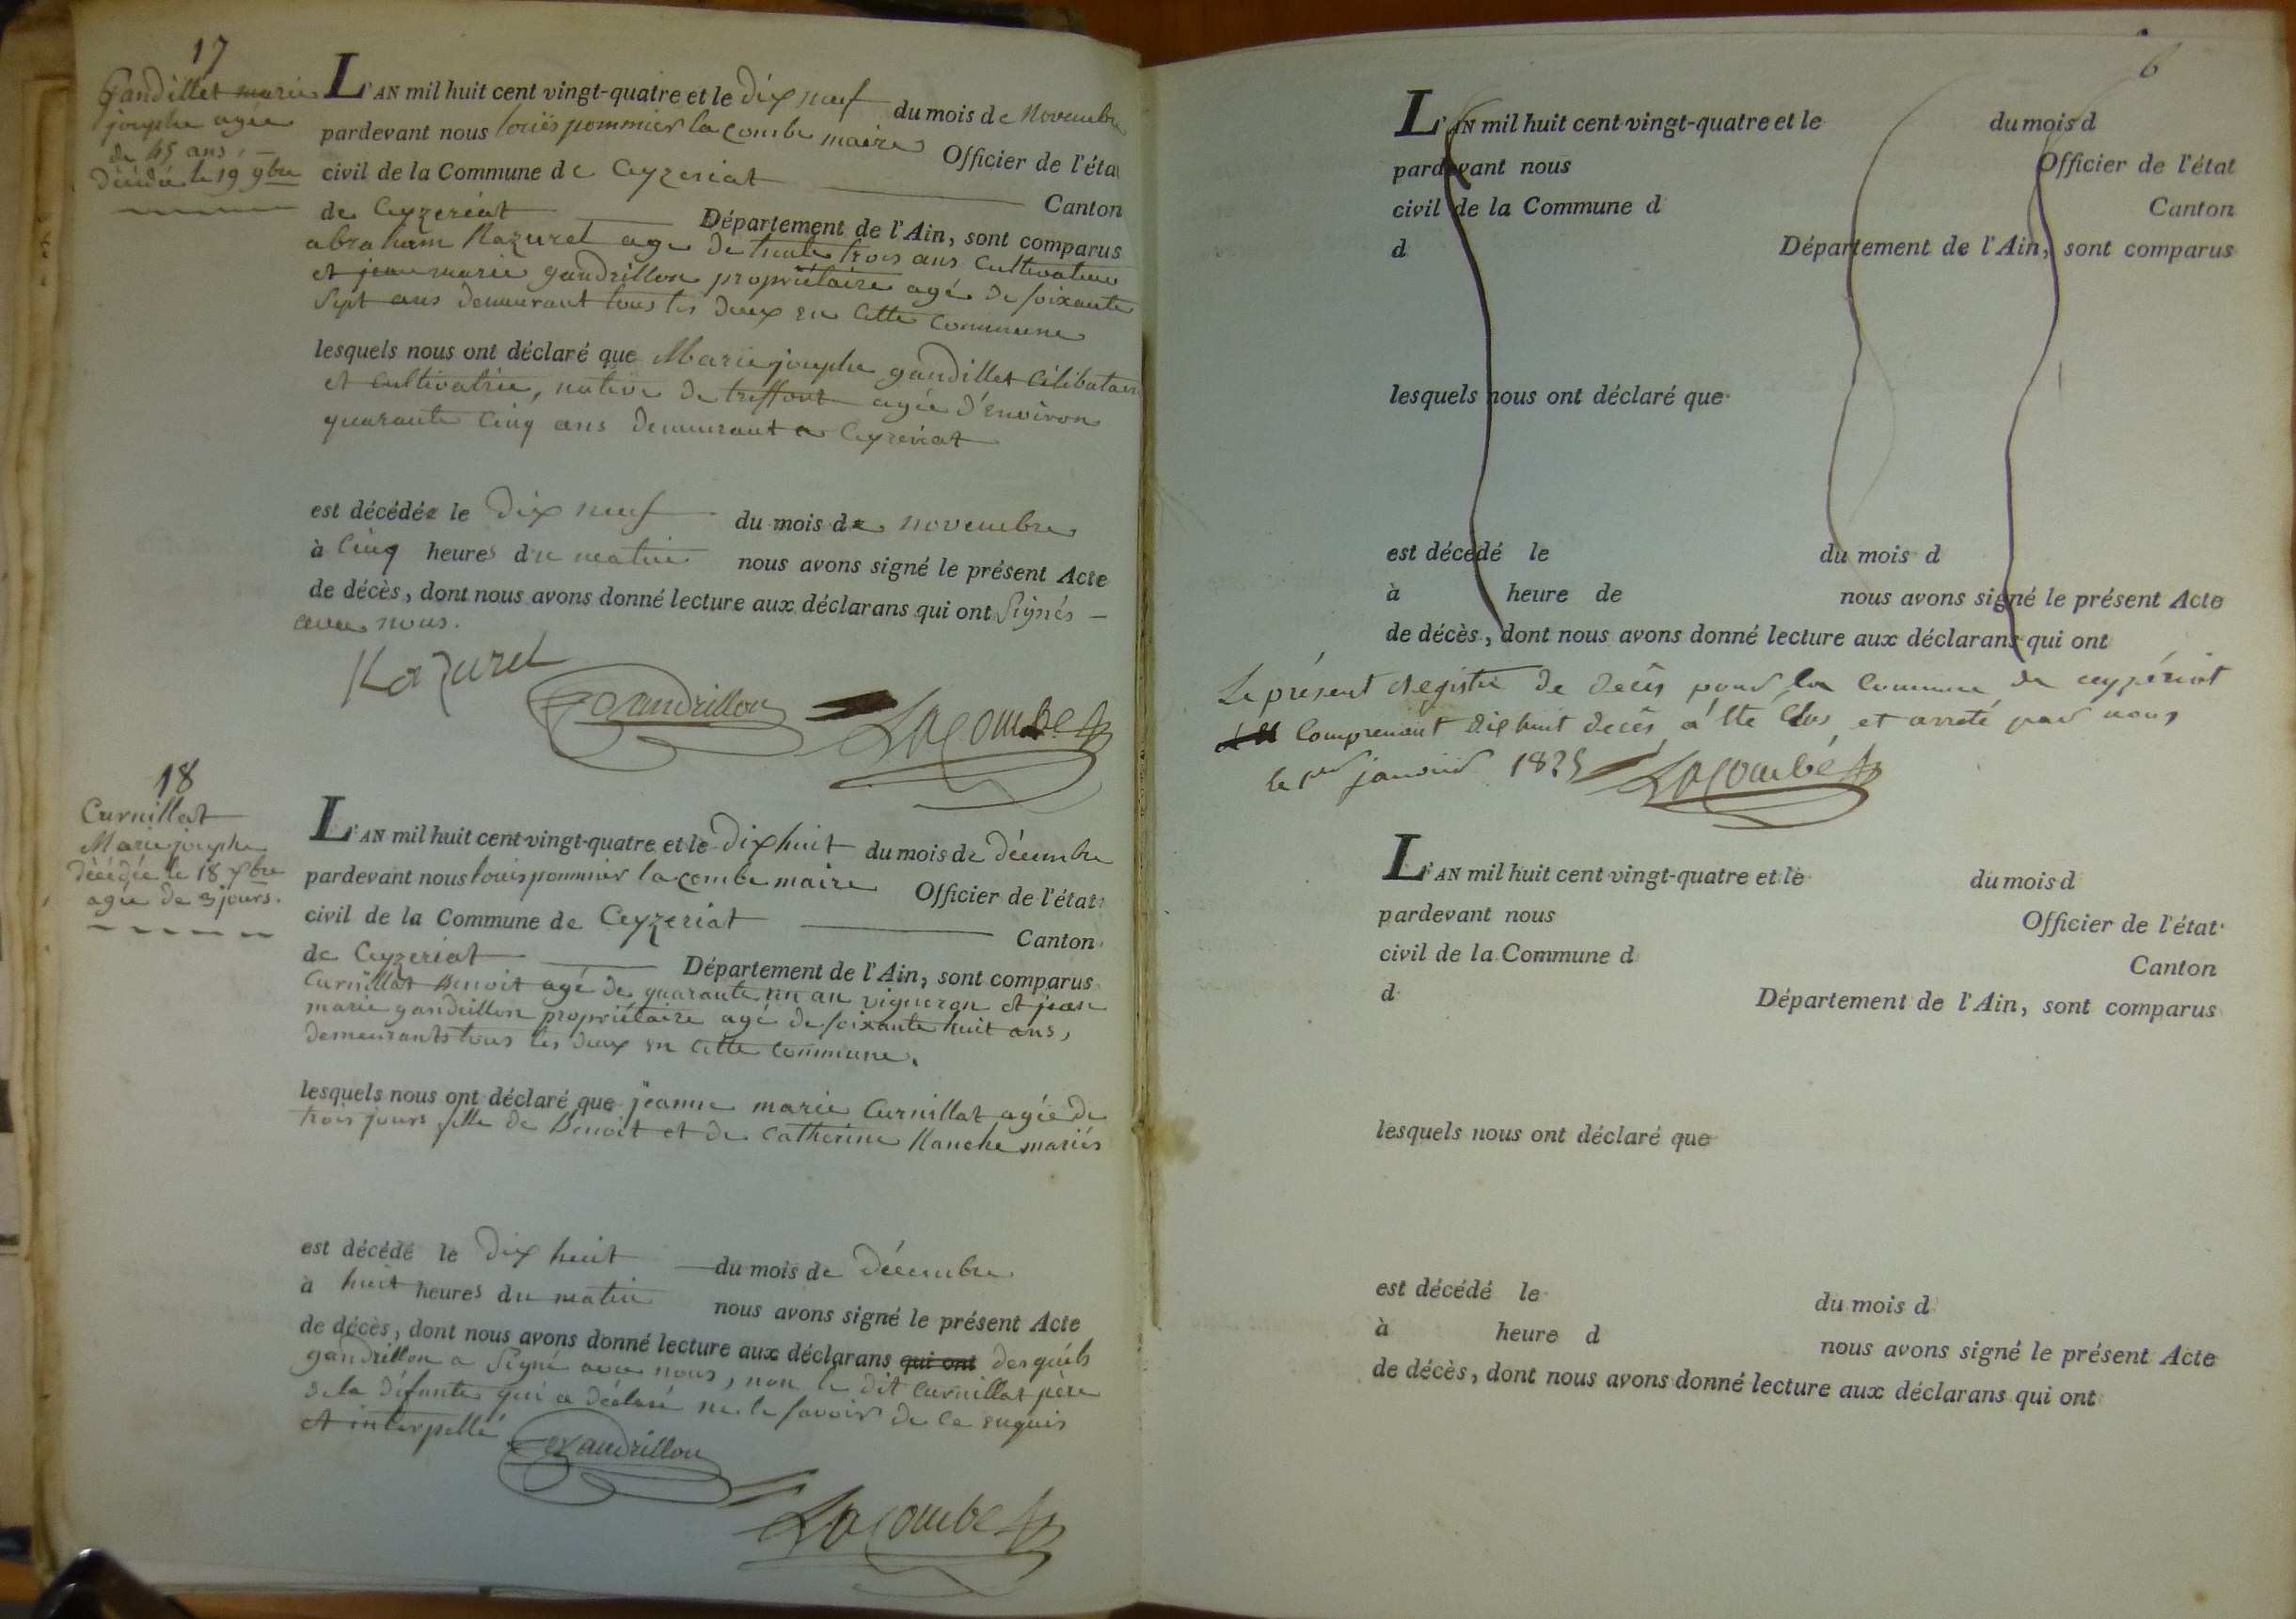 17
Gandillet marie
josephe agée
de 45 ans. —
décédée le 19 9bre
L'AN mil huit cent vingt-quatre et le dix neuf du mois de Novembre
pardevant nous louis pommier la combe maire Officier de l'éta
civil de la Commune de Ceyzeriat Canton
de Ceyzeriat Département de l'Ain, sont comparus
abraham Razuret age de trente trois ans cultivateur
et jean marie gandrillon propriétaire agé de soixante
sept ans demeurant tous les deux en cette commune
lesquels nous ont déclaré que Marie josephe gandillet célibataire
et cultivatrice, native de treffort agée d'environ
quarante cinq ans demeurant a Ceyzeriat
est décédée le dix neuf du mois de novembre
à cinq heures du matin nous avons signé le présent Acte
de décès, dont nous avons donné lecture aux déclarans qui ont signés —
avec nous.
Razuret
Gandrillon
Lacombe
18
Curnillat
Marie josephe
décédée le 18 xbre
agée de 3 jours.
L'AN mil huit cent vingt-quatre et le dix huit du mois de décembre
pardevant nous louis pommier la combe maire Officier de l'état
civil de la Commune de Ceyzeriat Canton
de Ceyzeriat Département de l'Ain, sont comparus
Curnillat Benoit agé de quarante un an vigneron et jean
marie gandrillon propriétaire agé de soixante huit ans,
demeurants tous les deux en cette commune.
lesquels nous ont déclaré que jeanne marie Curnillat agée de
trois jours fille de Benoit et de Catherine mariés
est décédé le dix huit du mois de Décembre
à huit heures du matin nous avons signé le présent Acte
de décès, dont nous avons donné lecture aux déclarans qui ont desquels
gandrillon a signé avec nous, non le dit Curnillat père
de la défunte qui a déclaré ne le savoir de ce enquis
et interpellé
Gandrillon
Lacombe
6
L'AN mil huit cent vingt-quatre et le du mois d
pardevant nous Officier de l'état
civil de la Commune d Canton
d Département de l'Ain, sont comparus
lesquels nous ont déclaré que
est décédé le du mois d
à heure de nous avons signé le présent Acte
de décès, dont nous avons donné lecture aux déclarans qui ont
Le présent Registre de décès pour la Commune de ceyzériat
comprenant dix huit décès a été clos et arreté par nous
le 1er janvier 1825 Lacombe
L'AN mil huit cent vingt-quatre et le du mois d
pardevant nous Officier de l'état
civil de la Commune d Canton
d Département de l'Ain, sont comparus
lesquels nous ont déclaré que
est décédé le du mois d
à heure d nous avons signé le présent Acte
de décès, dont nous avons donné lecture aux déclarans qui ont